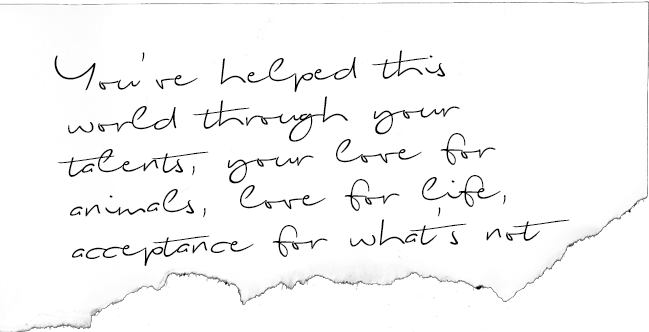 You've helped this
world through your
talents, your love for
animals, love for life,
acceptance for what's not